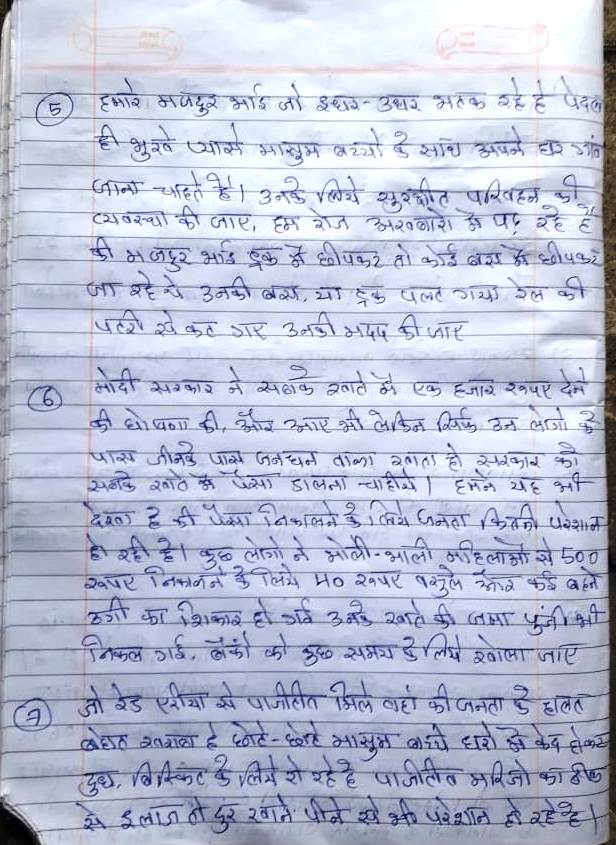 5 हमारे मजदुर भाई जो इधर-उधर भटक रहे है पैदल
ही भुखे प्यासे मासुम बच्चो के साथ अपने घर गांव
जाना चाहते है। उनके लिये सुरक्षीत परिवहन की
व्यवस्था की जाए, हम रोज अखबारो मे पढ़ रहे है
की मजदुर भाई ट्रक में छीपकर तो कोई बस में छीपकर
जा रहे थे उनकी बस, या ट्रक पलट गया रेल की
पटरी से कट गए उनकी मदद की जाए
6 मोदी सरकार ने सबके खाते में एक हजार रुपए देने
की घोषणा की, और आए भी लेकिन सिर्फ उन लोगो के
पास जीनके पास जनधन वाला खाता हो सरकार को
सबके खाते में पैसा डालना चाहीये। हमने यह भी
देखा है की पैसा निकालने के लिये जनता कितनी परेशान
हो रही है। कुछ लोगो ने भोली-भाली महिलाओ से 500
रुपए निकालने के लिये 40 रुपए वसुले और कई बहने
ठगी का शिकार हो गई उनके खाते की जमा पुंजी भी
निकल गई, बैंको को कुछ समय के लिये खोला जाए
7 जो रेड एरीया से पाजीटीव मिले वहां की जनता के हालत
बहोत खराब है छोटे-छोटे मासुम बच्चे घरो में केद होकर
दुध, बिस्किट के लिये रो रहे है पाजीटीव मरिजो का ठीक
से इलाज तो दुर खाने पीने से भी परेशान हो रहे है।